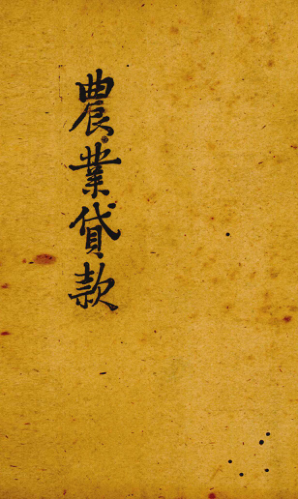 農業貸款